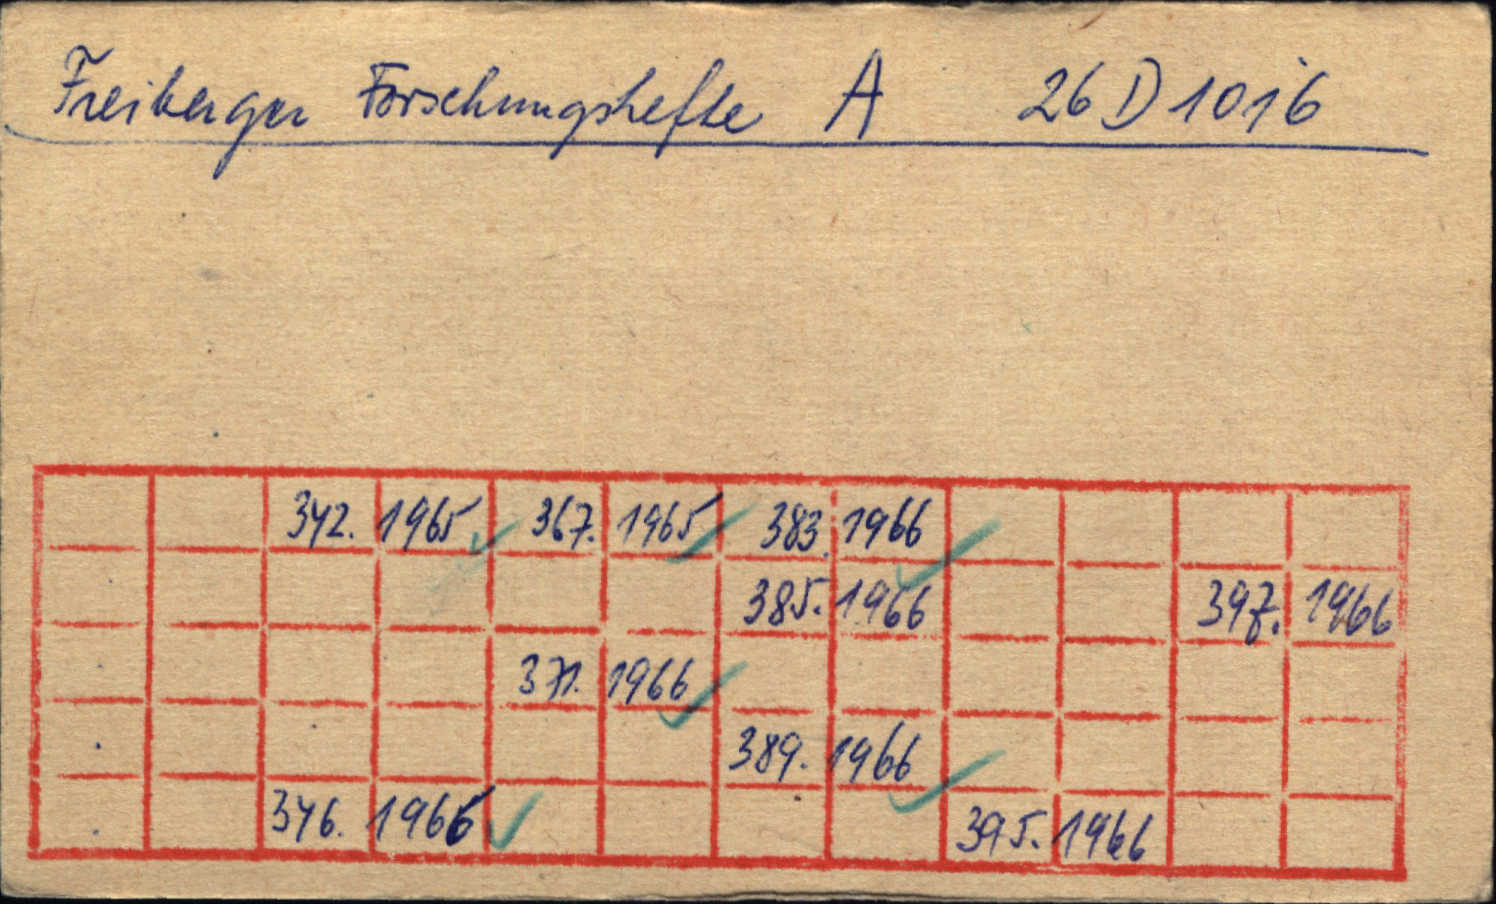 Freiberger Forschungshefte A 26 D 1016
342. 1965 367. 1965 383. 1966
385. 1966 397. 1966
371. 1966
389. 1966
346. 1966 395. 1966